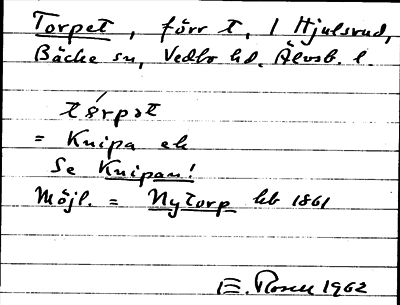 Torpet, förr t, / Hjulsrud,
Bäcke sn, Vedbo hd. Älvsb. l.
tɵ́rpət
= Knipa ek
Se Knipan!
Möjl. = Nytorp hb 1861
E. Rosell 1962